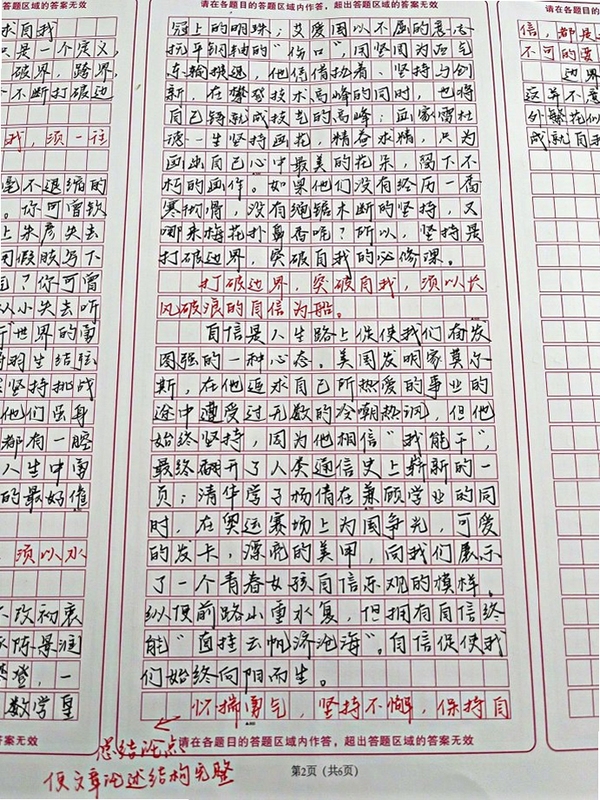 答题区域内作答，超出答题区域的答案无效
求自我
只是一个定义，
破界，跨界，
不断打破边
我，须一往
毫不退缩的
。你可曾钦
上朱彦失去
用假肢写下
气？你可曾
从小失去听
世界的雷
的生结弦
坚持挑战
他们虽身
都有一腔
人生中需
的最好催
须以水
不改初衷
陈景润
攀登，一
数学皇
答案无效
请在各题目的答题区域内作答，超出答题区域的答案无效
冠上的明珠；艾爱国以不屈的意志
抗平钢铜的“伤口”，同坚固为西气
东输接迅，他凭借执着、坚持与创
新，在攀登技术高峰的同时，也将
自己铸就成技艺的高峰；画家雷杜
德一生坚持画花，精益求精，只为
画出自己心中最美的花朵，留下不
朽的画作。如果他们没有经历一番
寒彻骨，没有绳锯木断的坚持，又
哪来梅花扑鼻香呢？所以，坚持是
打破边界，突破自我的必修课。
打破边界，突破自我，须以长
风破浪的自信为船。
自信是人生路上促使我们奋发
图强的一种心态。美国发明家莫尔
斯，在他追求自己所热爱的事业的
途中遭受过无数的冷嘲热讽，但他
始终坚持，因为他相信“我能干”，
最终翻开了人类通信史上崭新的一
页；清华学子杨倩在兼顾学业的同
时，在奥运赛场上为国争光，可爱
的发卡，漂亮的美甲，向我们展示
了一个青春女孩自信乐观的模样。
纵使前路山重水复，但拥有自信终
能“直挂云帆济沧海”。自信促使我
们始终向阳而生。
怀揣勇气，坚持不懈，保持自
请在各题目的答题区域内作答，超出答题区域的答案无效
总结论点
使文章论述结构完整
第2页（共6页）
请在各题目的
信，都是
不可的要
边界
这并不意
外繁花似
成就自我
请在各题目